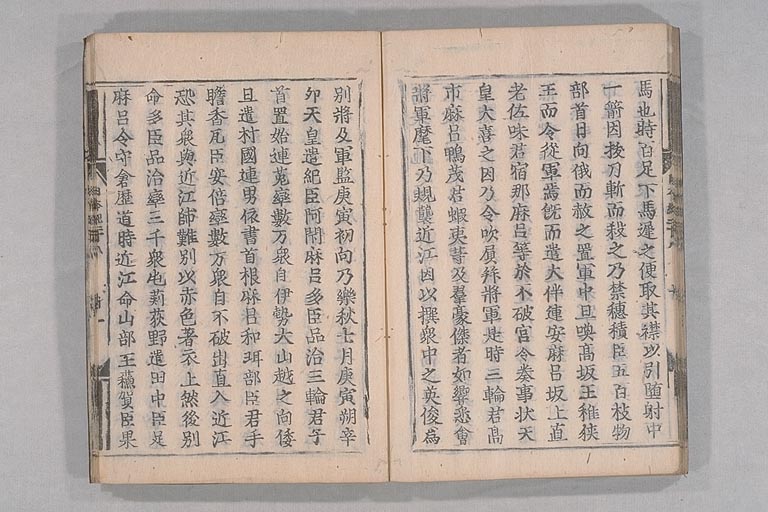 馬也時百足下馬遲之便取其襟以引墮射中
一箭因拔刀斬而殺之乃禁穗積臣五百枝物
部首日向俄而赦之置軍中且喚髙坂王稚狹
王而令從軍焉旣而遣大伴連安麻呂坂上直
老佐味君宿那麻呂等於不破宮令奏事狀天
皇大喜之因乃令吹負拜將軍是時三輪君髙
市麻呂鴨茂君蝦夷等及羣豪傑者如響悉會
將軍麾下乃規襲近江因以撰衆中之英俊爲
別將及軍監庚寅初向乃樂秋七月庚寅朔辛
卯天皇遣紀臣阿閇麻呂多臣品治三輪君子
首置始連菟率數万衆自伊勢大山越之向倭
且遣村國連男依書首根麻呂和珥部臣君手
膽香瓦臣安倍率數万衆自不破出直入近江
恐其衆與近江師難別以赤色著衣上然後別
命多臣品治率三千衆屯莿荻野遣田中臣足
麻呂令守倉歷道時近江命山部王蘇賀臣果